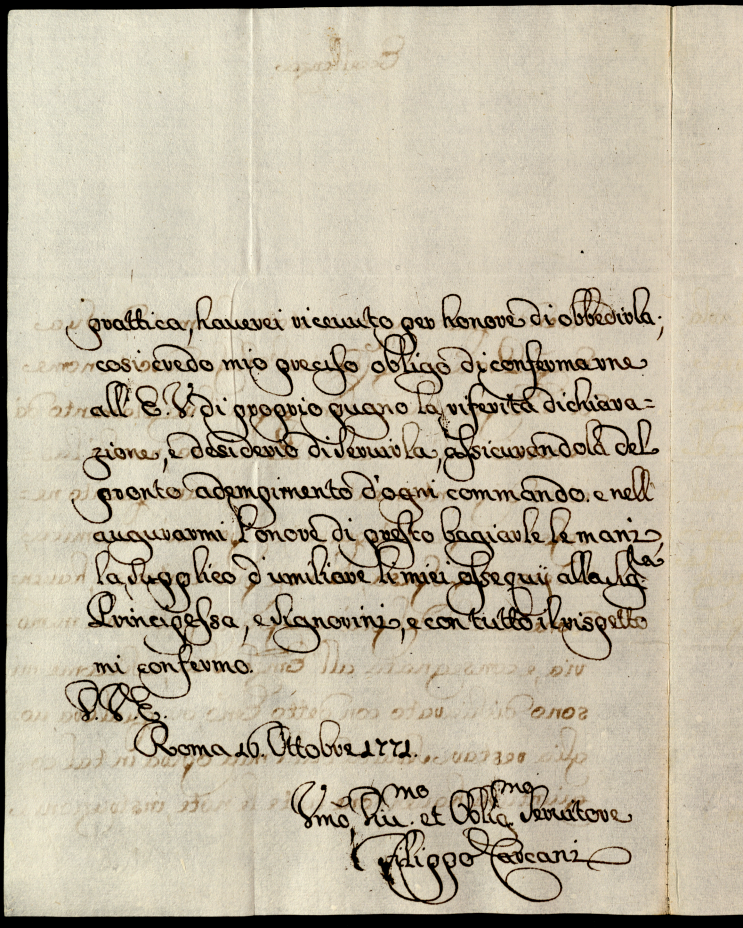 prattica, haverei ricevuto per honore di obbedirla;
così credo mio preciso obligo di confermarne
all' E. V. di proprio pugno la riferita dichiara=
zione, e desiderio di servirla, assicurandola del
pronto adempimento d'ogni commando. e nell'
augurarmi l'onore di presto bagiarle le mani
la supplico d'umiliare li miei ossequij alla Sig.ra
Principessa, e Signorini, e con tutto il rispetto
mi confermo.
D. V. E.
Roma 16. Ottobre 1771.
Vmõ, Div.mo et Oblig.mo Servitore
Filippo